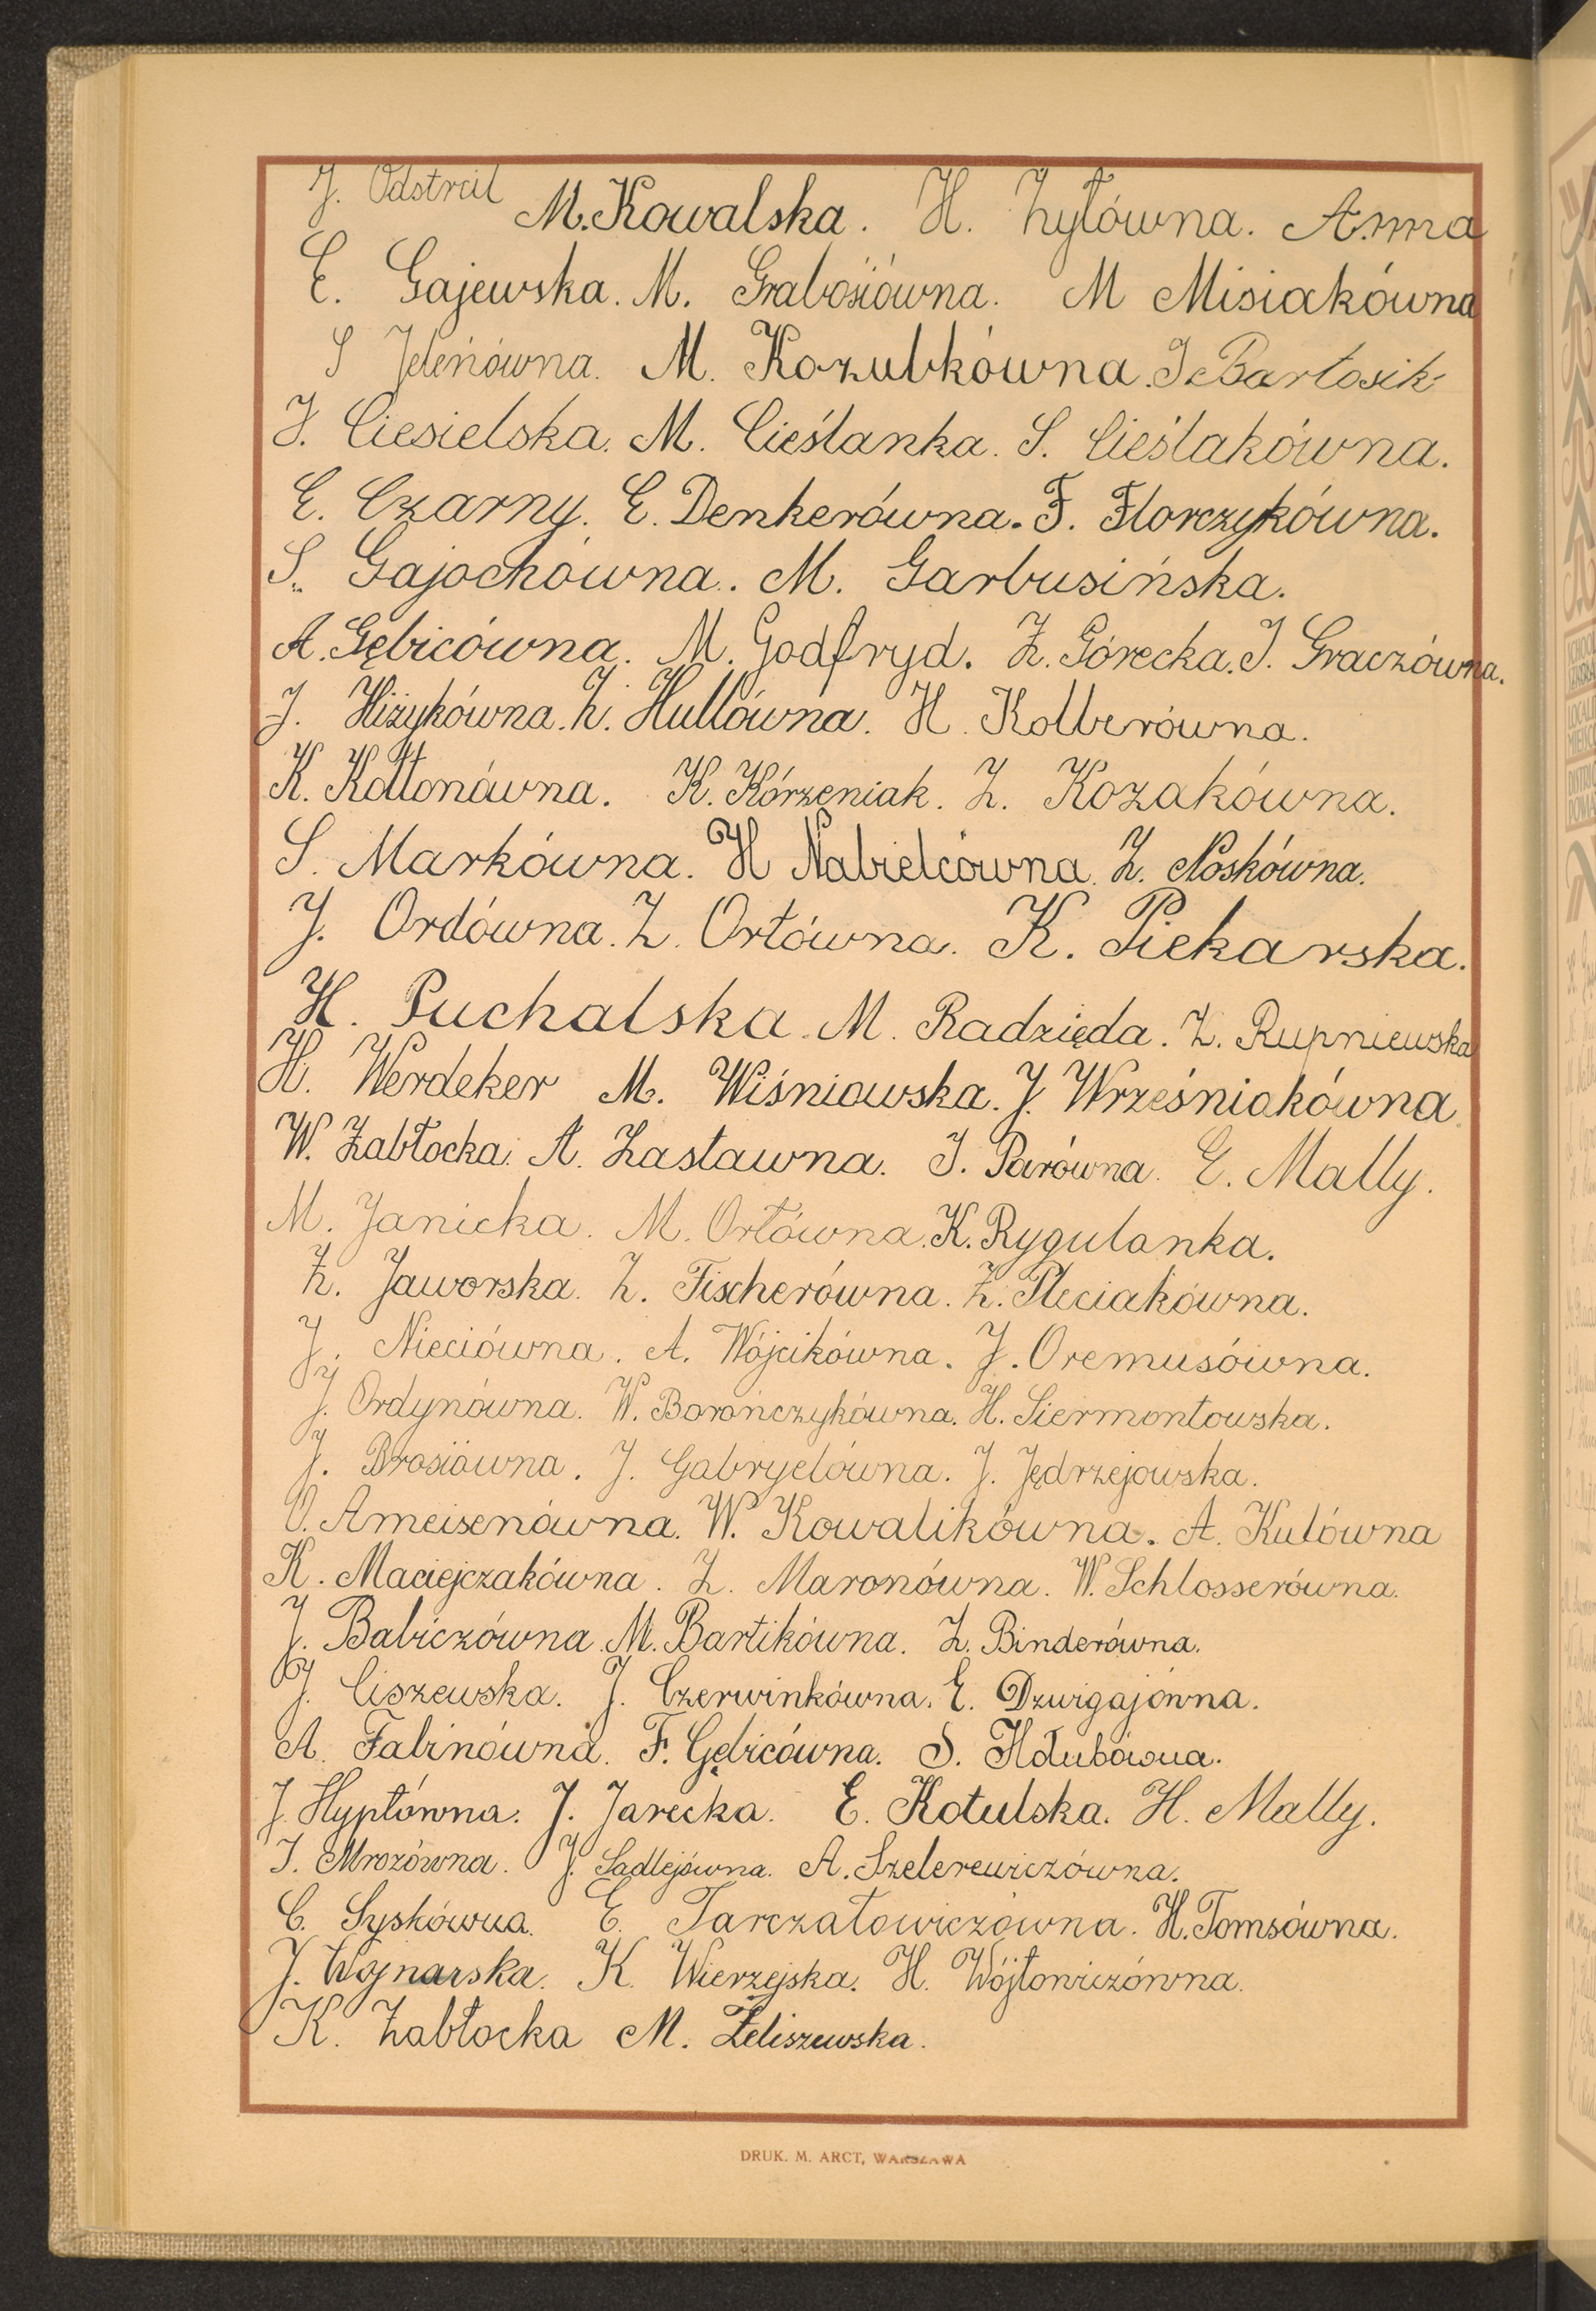 J. Odstrcil M. Kowalska. H. Zyłówna. Anna
E. Gajewska. M. Grabósiówna. M Misiakówna
S Jeleńówna. M. Kozubkówna. J. Bartosik
J. Ciesielska. M. Cieślanka. S. Cieślakówna.
E. Czarny. E. Denkerówna. F. Florczykówna.
S. Gajochówna. M. Garbusińska.
A. Gębicówna. M. Godfryd. Z. Górecka. J. Graczówna.
J. Hiżykówna. Z. Hullówna. H. Kolberówna.
K. Kołtonówna. K. Kórzeniak. Z. Kozakówna.
S. Markówna. H Nabielcówna. Z. Noskówna.
J. Ordówna. Z. Orłówna. K. Piekarska.
H. Puchalska. M. Radzięda. Z. Rupniewska
H. Werdeker M. Wiśniowska. J. Wrześniakówna.
W. Zabłocka. A. Zastawna. J. Parówna. E. Mally.
M. Janicka. M. Orłówna. K. Rygulanka.
Z. Jaworska. Z. Fischerówna. Z. Pleciakówna.
J. Nieciówna. A. Wójcikówna. J. Oremusówna.
J. Ordynówna. W. Borończykówna. H. Siermontowska.
J. Brosiówna. J. Gabryelówna. J. Jędrzejowska.
O. Ameisenówna. W. Kowalikówna. A. Kulówna
K. Maciejczakówna. Z. Maronówna. W. Schlosserówna.
J. Babiczówna. M. Bartikówna. Z. Binderówna.
J. Ciszewska. J. Czerwinkówna. E. Dzwigajówna.
A. Fabinówna. F. Gębicówna. S. Hołubówna.
J. Hyptówna. J. Jarecka. E. Kotulska. H. Mally.
J. Mrozówna. J. Sadlejówna. A. Szelerewiczówna.
C. Syskówna. E. Tarczałowiczówna. H. Tomsówna.
J. Wojnarska. K. Wierzejska. H. Wójtowiczówna.
K. Zabłocka M. Żeliszewska.
DRUK. M. ARCT, WARSZAWA